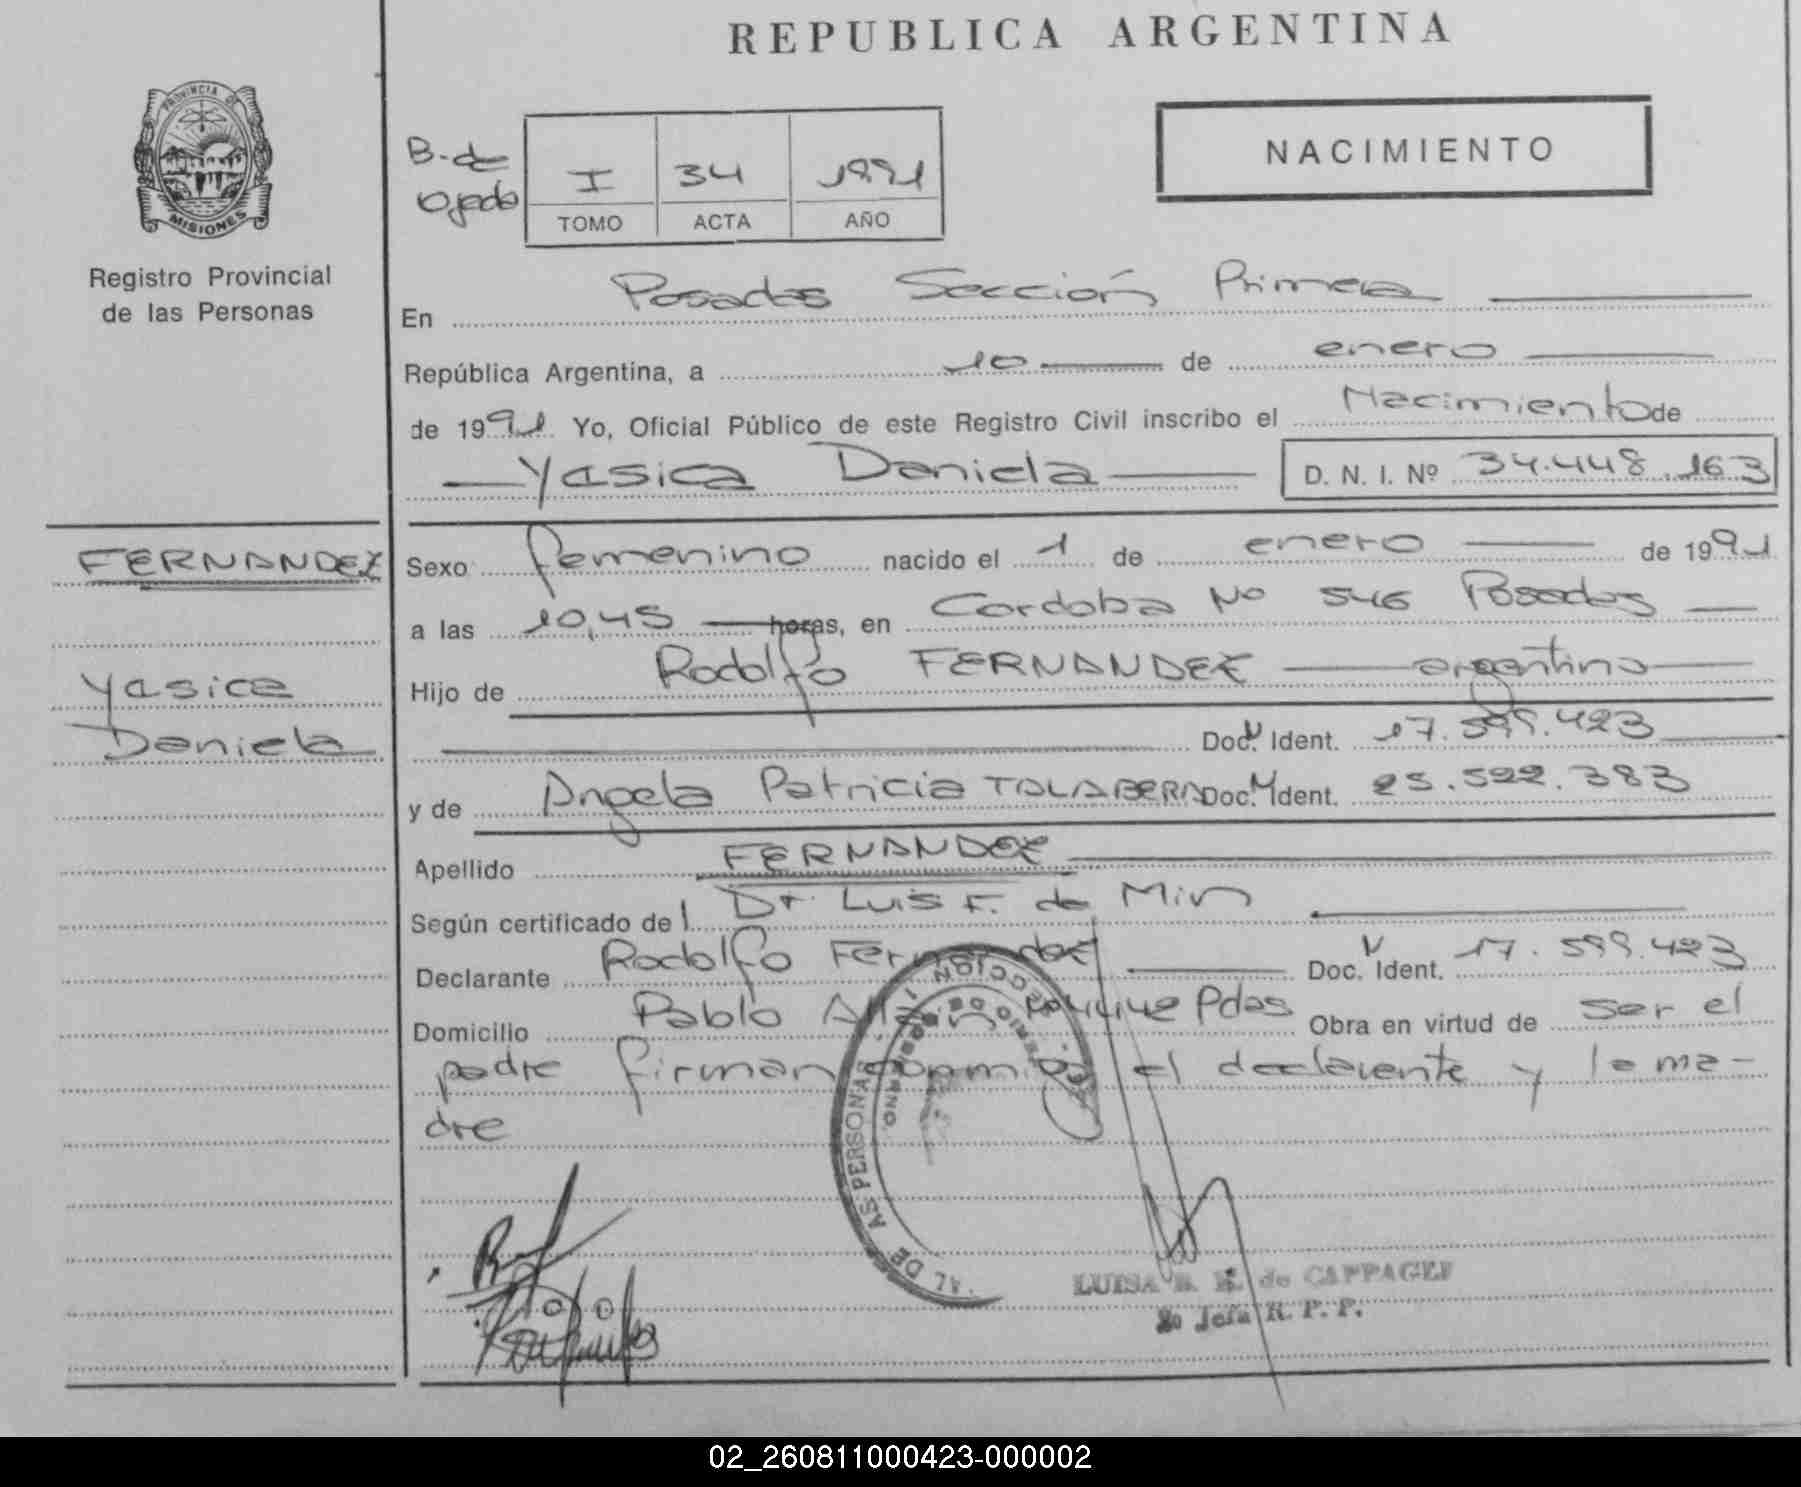 REPUBLICA ARGENTINA
PROVINCIA DE
MISIONES
Registro Provincial
de las Personas
B. de
Ojeda
I 34 1991
TOMO ACTA AÑO
NACIMIENTO
En Posadas Sección Primera
República Argentina, a 10 de enero
de 1991 Yo, Oficial Público de este Registro Civil inscribo el Nacimiento de
Yasica Daniela D. N. I. Nº 34.448.163
FERNANDEZ
Yasica
Daniela
Sexo femenino nacido el 1 de enero de 1991
a las 10,45 horas, en Cordoba Nº 546 Posadas
Hijo de Rodolfo FERNANDEZ argentino
Doc. Ident. 17.599.423
y de Angela Patricia TALABERA Doc. Ident. 25.522.383
Apellido FERNANDEZ
Según certificado del Dr. Luis F. de Min
Declarante Rodolfo Fernandez Doc. Ident. 17.599.423
Domicilio Pablo Pdas Obra en virtud de ser el
padre firman conmigo el declarante y la ma-
dre
SECCION 1ra.
AL DE AS PERSONAS
LUISA de CAPPAGLI
2º Jefa R. P. P.
02_260811000423-000002